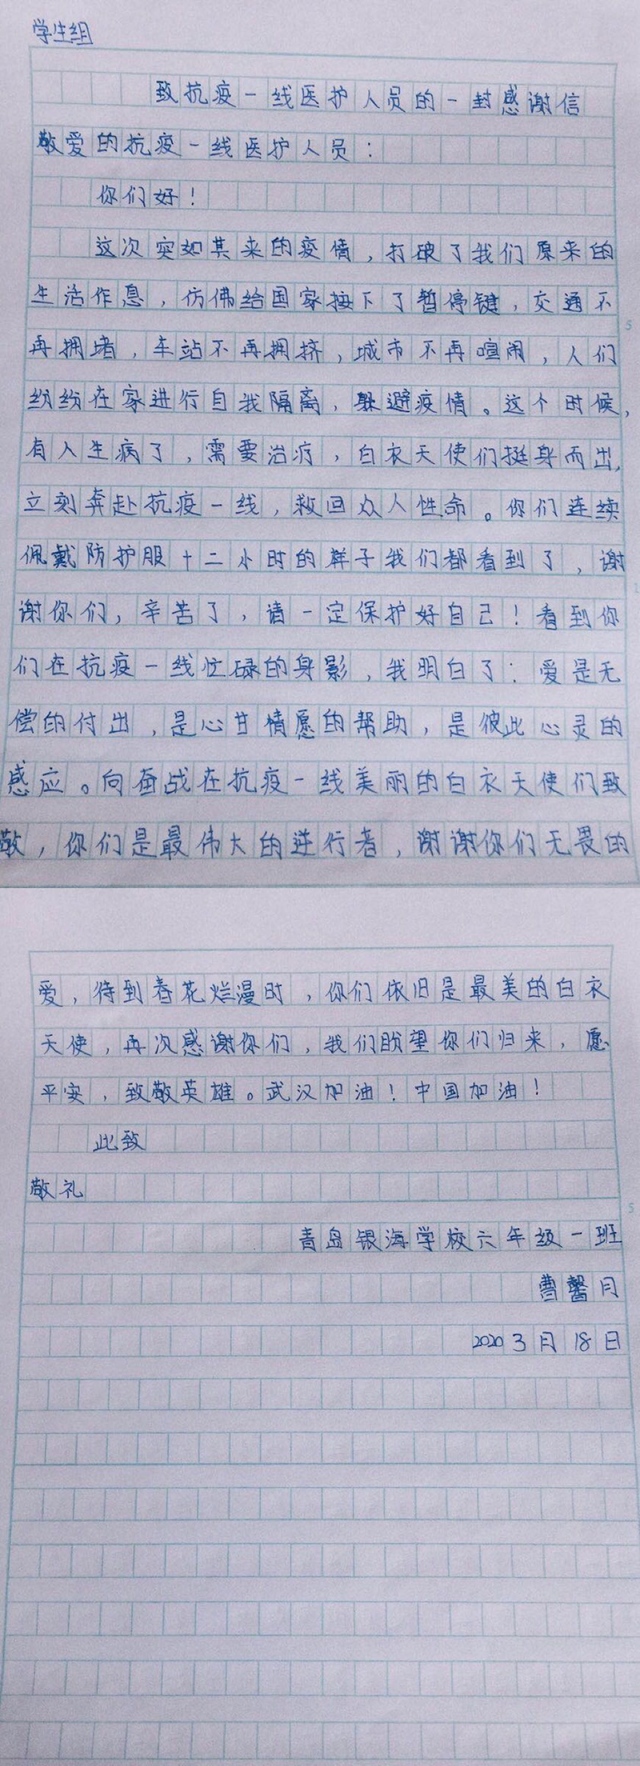 学生组
致抗疫一线医护人员的一封感谢信
敬爱的抗疫一线医护人员：
你们好！
这次突如其来的疫情，打破了我们原来的
生活作息，仿佛给国家按下了暂停键，交通不
再拥堵，车站不再拥挤，城市不再喧闹，人们
纷纷在家进行自我隔离，躲避疫情。这个时候，
有人生病了，需要治疗，白衣天使们挺身而出，
立刻奔赴抗疫一线，救回众人性命。你们连续
佩戴防护服十二小时的样子我们都看到了，谢
谢你们，辛苦了，请一定保护好自己！看到你
们在抗疫一线忙碌的身影，我明白了：爱是无
偿的付出，是心甘情愿的帮助，是彼此心灵的
感应。向奋战在抗疫一线美丽的白衣天使们致
敬，你们是最伟大的逆行者，谢谢你们无畏的
爱，待到春花烂漫时，你们依旧是最美的白衣
天使，再次感谢你们，我们盼望你们归来，愿
平安，致敬英雄。武汉加油！中国加油！
此致
敬礼
青岛银海学校六年级一班
曹馨月
2020 3月18日